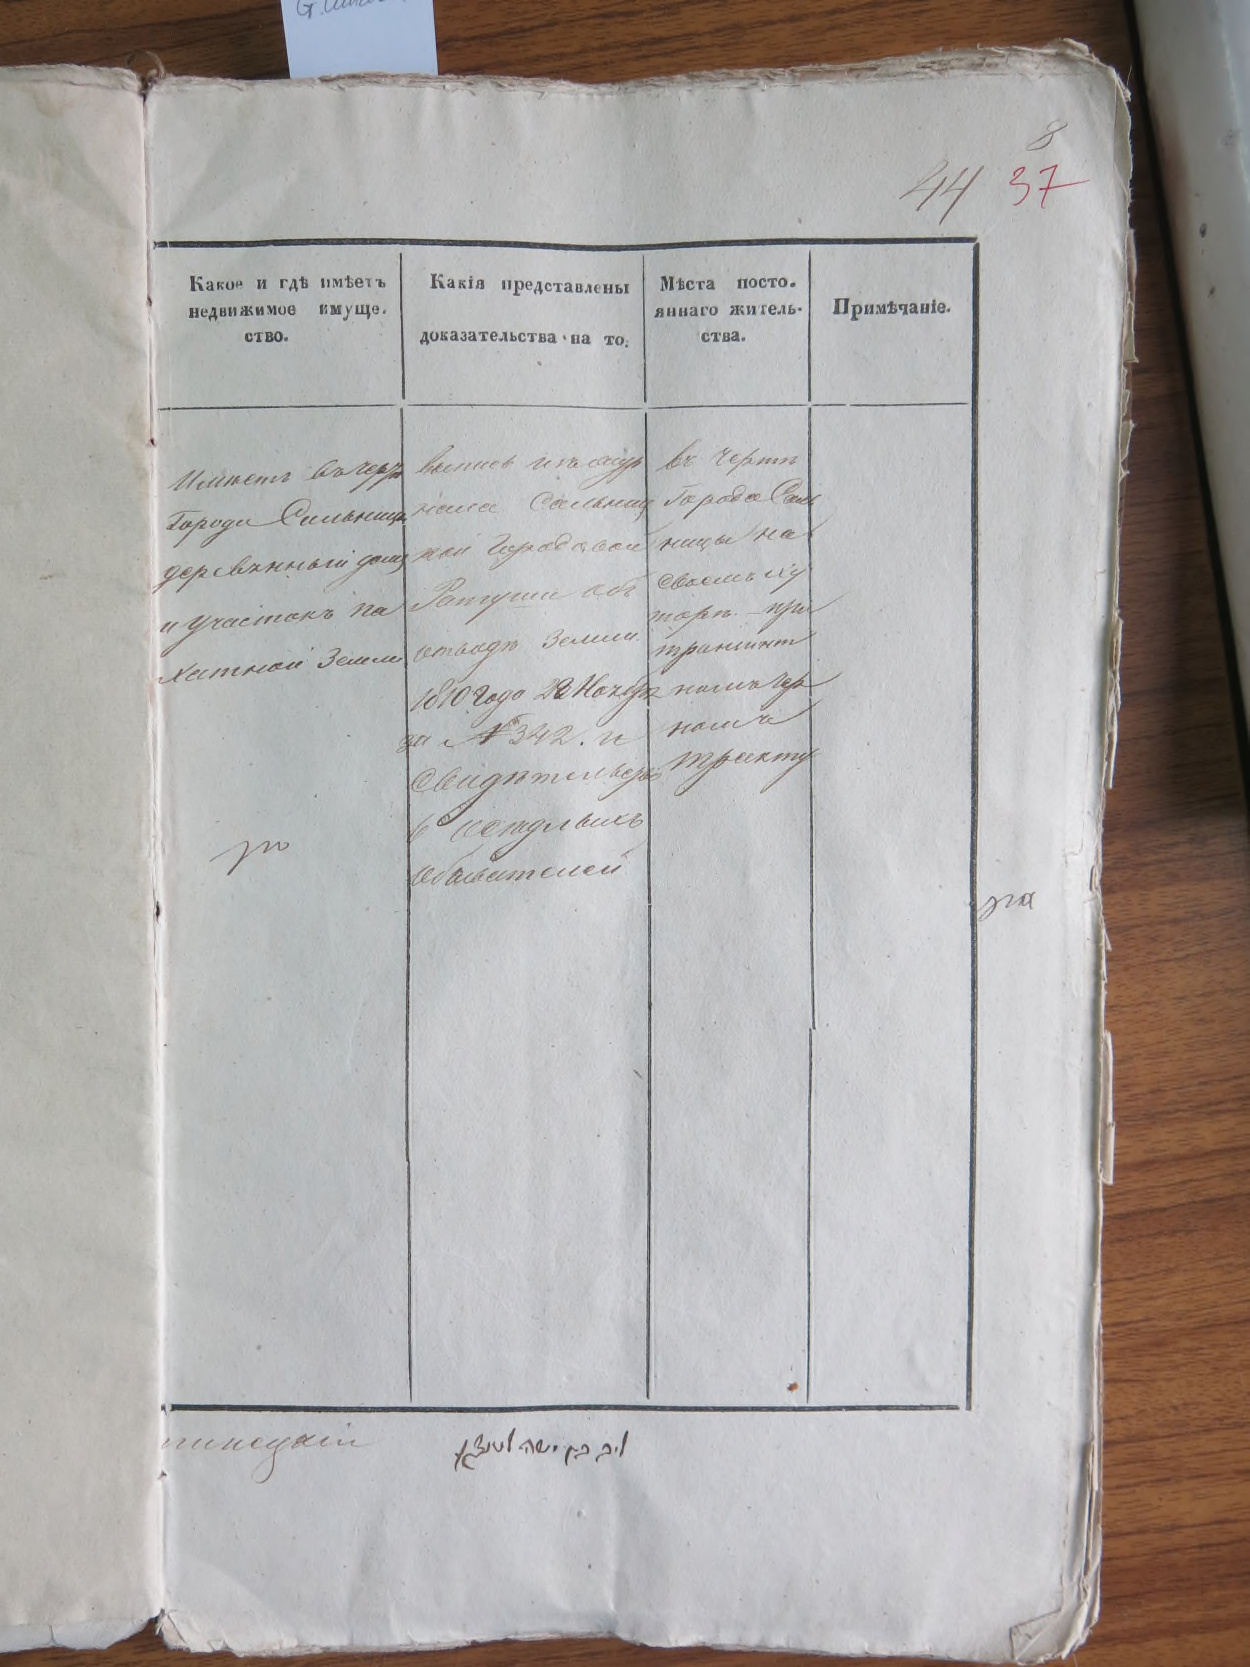 8
44 37
Какое и гдѣ имѣетъ
недвижимое имуще.
ство.
Какія представлены
доказательства на то.
Мѣста посто.
яннаго житель.
ства.
Примѣчаніе.
Имѣетъ въ черт
Города Сальницы
деревянный домъ
и участокъ па
хатной Земли
выпись изъ жур
нала Сальниц
кой Городовой
Ратуши объ
отводѣ Земли
1810 Года 22 Ноября
за № 342. и
Свидѣтельство
6 осѣдлыхъ
обывателей
въ чертѣ
Города Саль
ницы на
своемъ ху
торѣ при
транзит
номъ чер
номъ
тракту